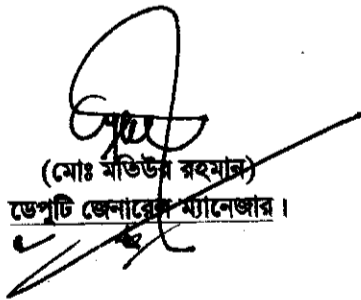 (মোঃ মতিউর রহমান)
ডেপুটি জেনারেল ম্যানেজার।